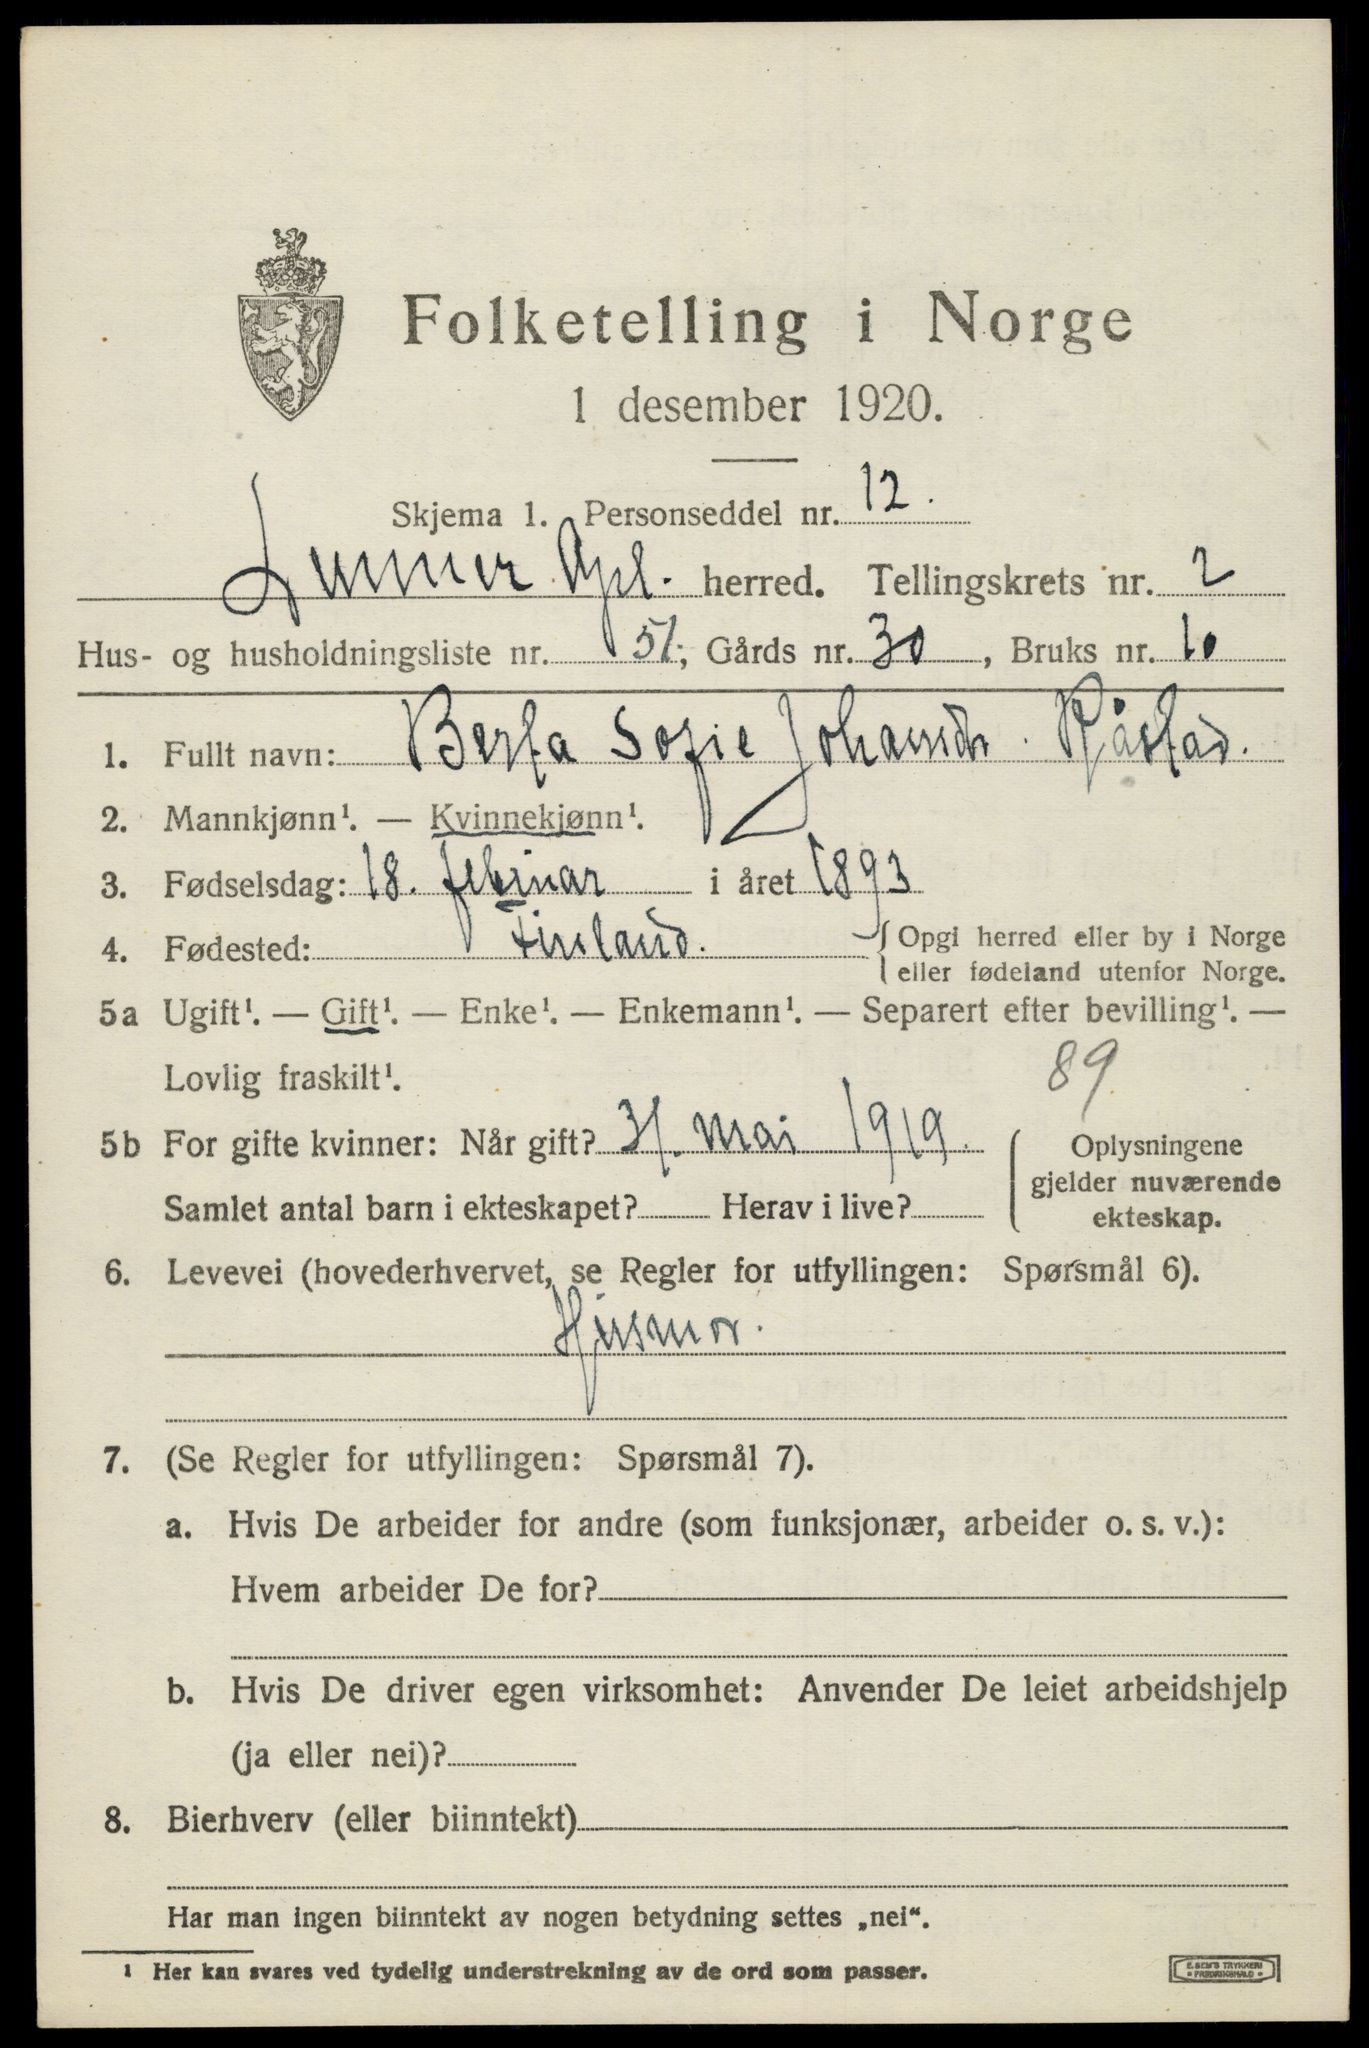 Folketelling i Norge
1 desember 1920.
Skjema 1. Personseddel nr. 12.
Lunner Opl. herred. Tellingskrets nr. 2
Hus- og husholdningsliste nr. 51; Gårds nr. 30, Bruks nr. 10
1. Fullt navn: Berta Sofie Råstad.
2. Mannkjønn¹. — Kvinnekjønn¹.
3. Fødselsdag: 18. februar i året 1893
4. Fødested: Finland. { Opgi herred eller by i Norge
eller fødeland utenfor Norge.
5a Ugift¹. — Gift¹. — Enke¹. — Enkemann¹. — Separert efter bevilling¹. —
Lovlig fraskilt¹. 89
5b For gifte kvinner: Når gift? 31. mai 1919. ( Oplysningene
gjelder nuværende
Samlet antal barn i ekteskapet? Herav i live? ekteskap.
6. Levevei (hovederhvervet, se Regler for utfyllingen: Spørsmål 6).
Husmor.
7. (Se Regler for utfyllingen: Spørsmål 7).
a. Hvis De arbeider for andre (som funksjonær, arbeider o. s. v.):
Hvem arbeider De for?
b. Hvis De driver egen virksomhet: Anvender De leiet arbeidshjelp
(ja eller nei)?
8. Bierhverv (eller biinntekt)
Har man ingen biinntekt av nogen betydning settes „nei“.
¹ Her kan svares ved tydelig understrekning av de ord som passer.
E. SEM'S TRYKKERI
• FREDRIKSHALD •